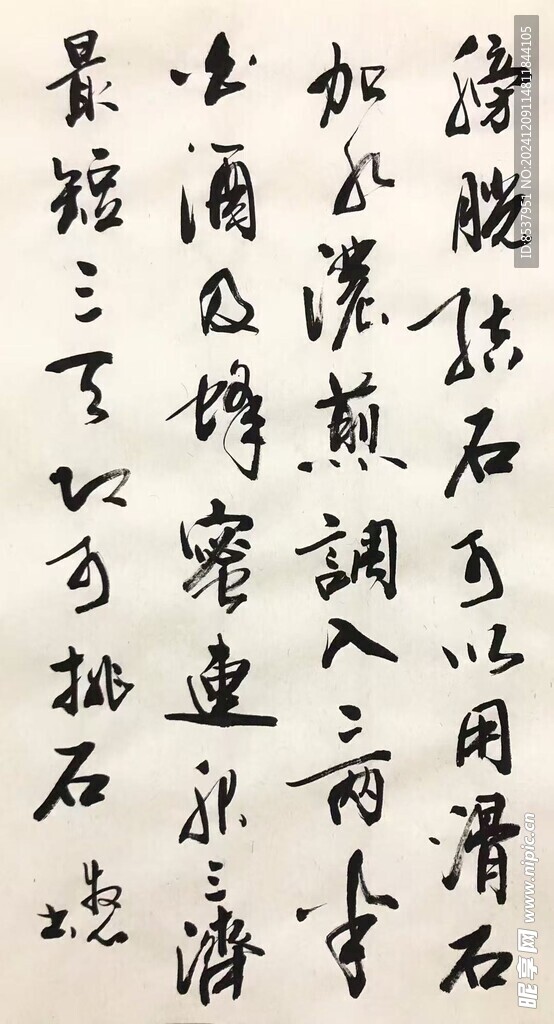 膀胱結石可以用滑石
加水濃煎調入二两半
白酒及蜂蜜連服三濟
最短三天即可排石
书
ID:8537951 NO:20241209114811844105
昵享网 www.nipic.cn